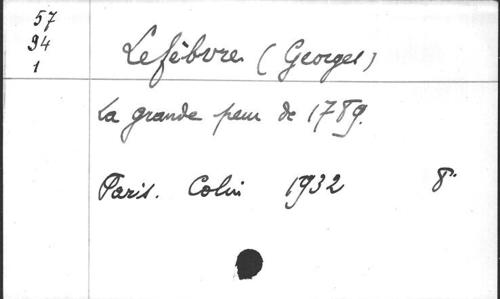 57
94
1
Lefèbvre (Georges)
La grande peur de 1789.
Paris. Colin 1932 8°